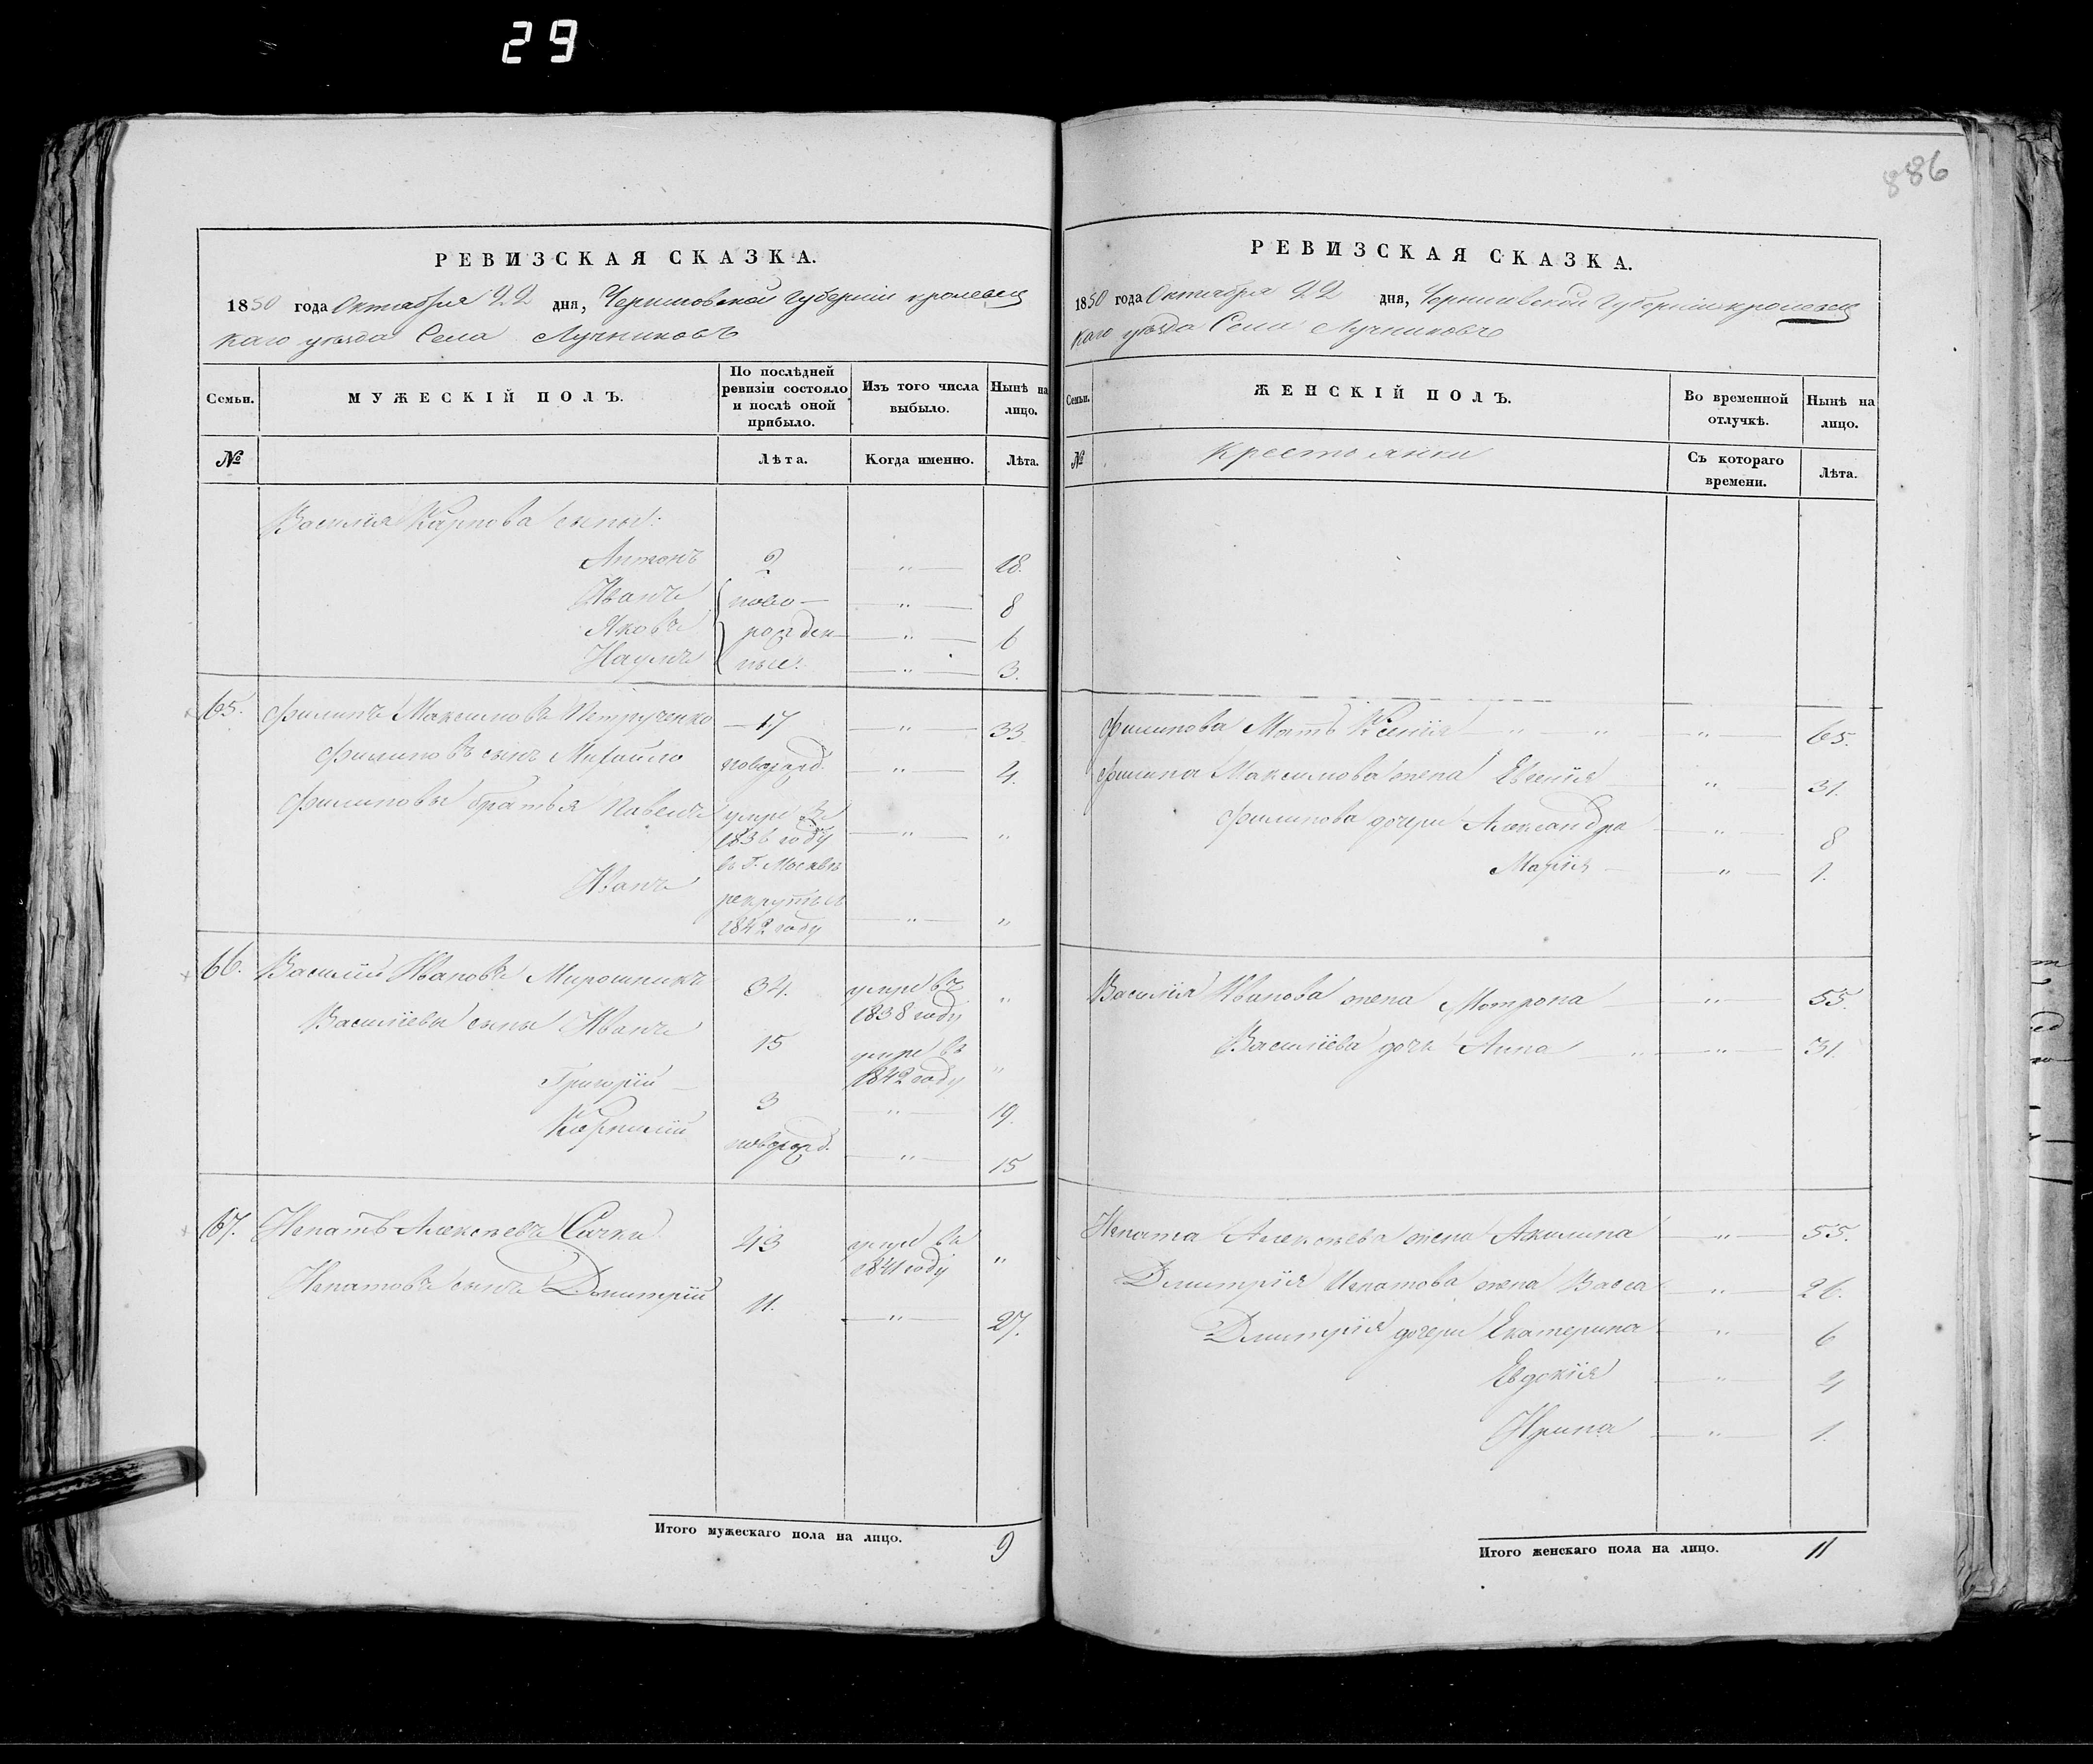 29
886
РЕВИЗСКАЯ СКАЗКА.
1850 года Октября 22 дня, Черниговской губерніи кролевец
каго уѣзда Села Лучниковъ
Семьи. МУЖЕСКІЙ ПОЛЪ. По послѣдней ревизіи состояло и послѣ оной прибыло. Изъ того числа выбыло. Нынѣ на лицо.
№ Лѣта. Когда именно. Лѣта.
Василія Карпова сыны:
Антонъ 2 " 18.
Иванъ ново- " 8
Яковъ рожден- " 6
Наумъ ные. " 3.
65. Филипъ Максимовъ Петрученко 17 " 33
Филиповъ сынъ Михайло новорожд. " 4.
Филиповы братья Павелъ умре въ
1836 году " "
въ г. Москвѣ
Иванъ рекрутъ съ
1842 году " "
66. Василій Ивановъ Мирошникъ 34. умре въ "
1838 году
Василіевы сыны Иванъ 15 умре въ "
1842 году
Григорій 3 " 19.
Карнилій новорожд. " 15
67. Игнатъ Алексѣевъ Сачки 43 умре въ "
1841 году
Игнатовъ сынъ Дмитрій 11. " 27.
Итого мужескаго пола на лицо. 9
РЕВИЗСКАЯ СКАЗКА.
1850 года Октября 22 дня, Черниговской Губерніи кролевец
каго уѣзда Села Лучниковъ
Семьи. ЖЕНСКІЙ ПОЛЪ. Во временной отлучкѣ. Нынѣ на лицо.
№ Крестьянки Съ котораго времени. Лѣта.
Филипова Мать Ксенія " " " 65.
Филипа Максимова жена Евгенія " 31.
Филипова дочери Александра " 8
Марія " 1.
Василія Иванова жена Мотрона " 55.
Василіева дочь Анна " " 31.
Игната Алексѣева жена Акилина " 55.
Дмитрія Игнатова жена Васса " 26.
Дмитрія дочери Екатерина " 6
Евдокія " 4
Ирина " 1.
Итого женскаго пола на лицо. 11